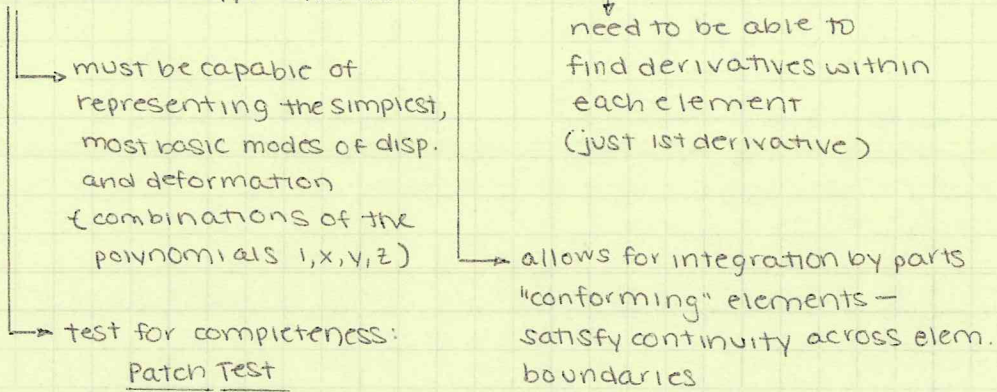 must be capable of
representing the simplest,
most basic modes of disp.
and deformation
(combinations of the
polynomials 1, x, y, z)
test for completeness:
Patch Test
need to be able to
find derivatives within
each element
(just 1st derivative)
allows for integration by parts
"conforming" elements –
satisfy continuity across elem.
boundaries